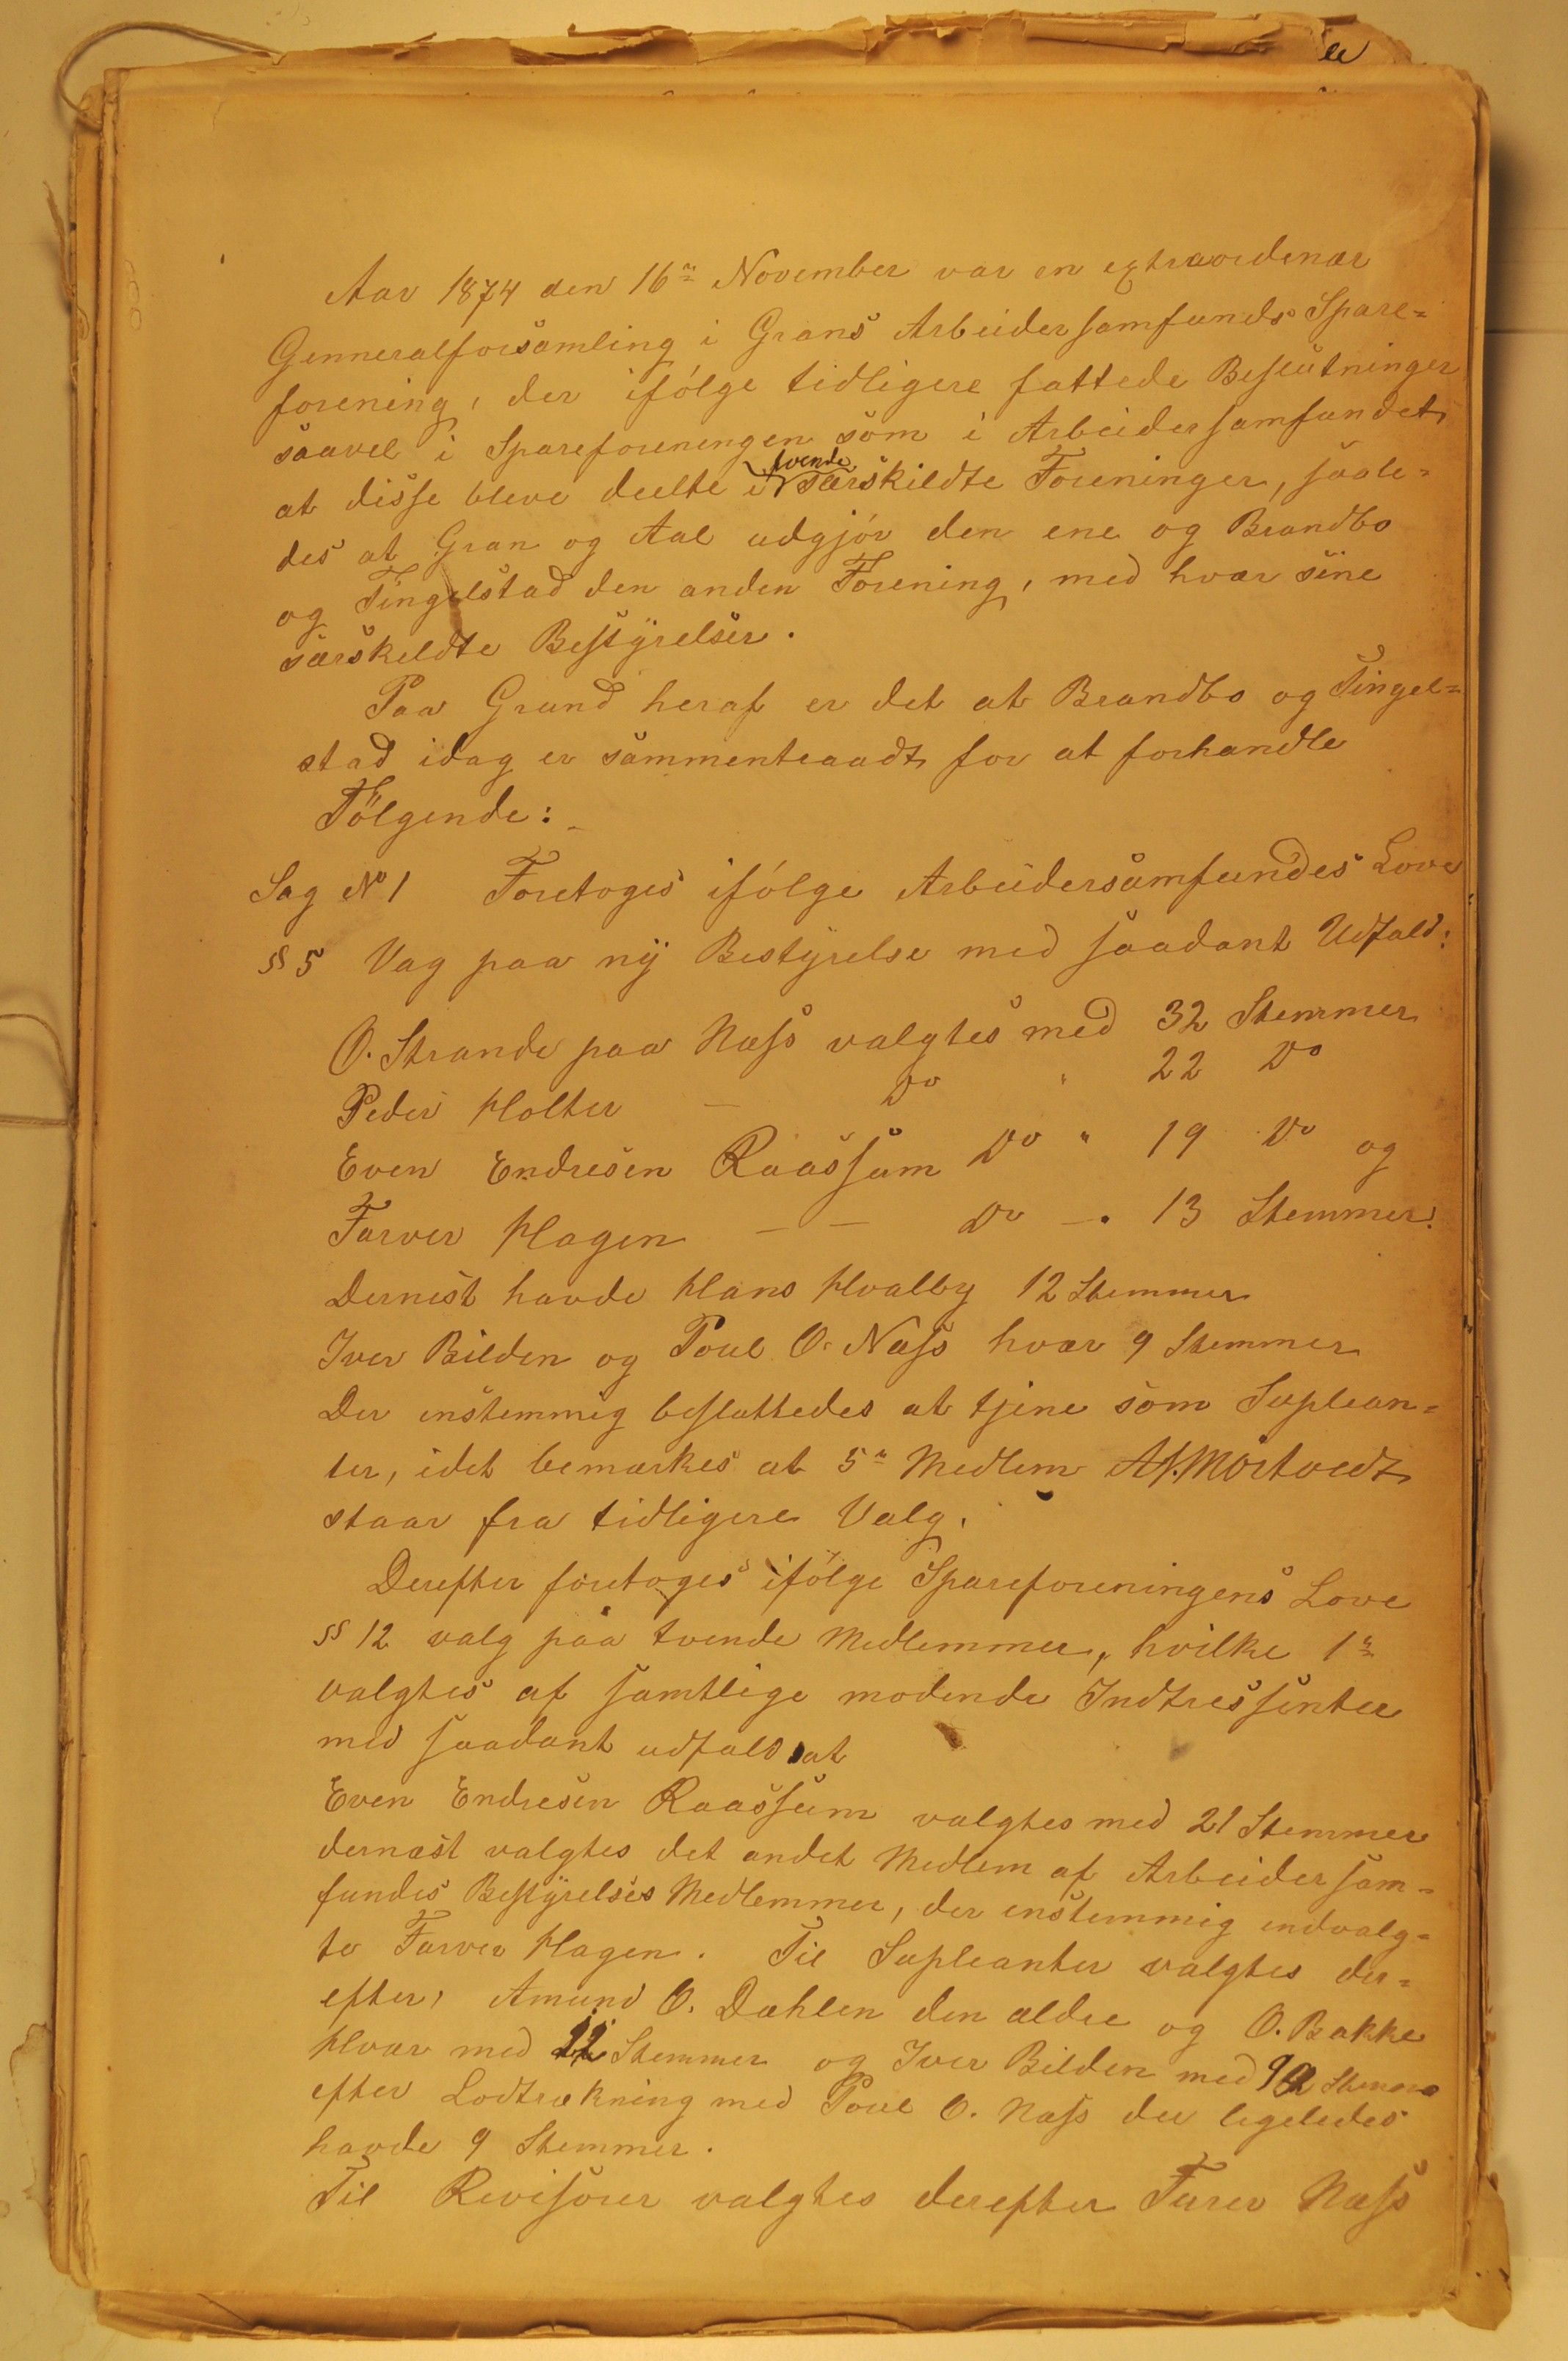 Aar 1874 den 16de November var en extraordenær
Genneralforsamling i Grans Arbeidersamfunds Spare=
forening, der ifölge tidligere fattede Beslutninger
saavel i Spareforeningen som i Arbeidersamfundet,
at disse bleve deelte i tvende særskildte Foreninger, saale=
des at Gran og Aal udgjör den ene og Brandbo
og Tingelstad den anden Forening, med hvær sine
særskeldte Bestyrelser.
Paa Grund heraf er det at Brandbo og Tingel=
stad idag er sammentraadt for at forhandle
Fölgende:
Sag No 1 Foretoges ifölge Arbeidersamfundes Love
§§ 5 Vag paa ny Bestyrelse med saadant Udfald:
O. Strande paa Næss valgtes med 32 Stemmer
Peder Holter — Do " 22 Do
Even Endresen Raassum Do " 19 Do og
Farver Hagen — — Do — " 13 Stemmer.
Dernest havde Hans Hvalby 12 Stemmer
Iver Bilden og Poul O. Næss hvær 9 Stemmer
Der enstemmig besluttedes at tjene som Suplean=
ter, idet bemærkes at 5te Medlem A. Mortvedt
staar fra tidligere Valg.
Derefter foretoges ifölge Spareforeningens Love
§§ 12 valg paa tvende Medlemmer, hvilke 1ste
valgtes af samtlige modende Indtressenter
med saadant udfald at
Even Endresen Raassum valgtes med 21 Stemmer
dernæst valgtes det andet Medlem af Arbeidersam=
fundes Bestyrelses Medlemmer, der enstemmig indvalg=
te Farver Hagen. Til Supleanter valgtes der=
efter, Amund O. Dæhlen den ældre og O. Bakke
Hvær med 11 Stemmer og Iver Bilden med 9 Stemmer
efter Lodtrækning med Poul O. Næss der legeledes
havde 9 Stemmer.
Til Revisorer valgtes derefter Furer Næss